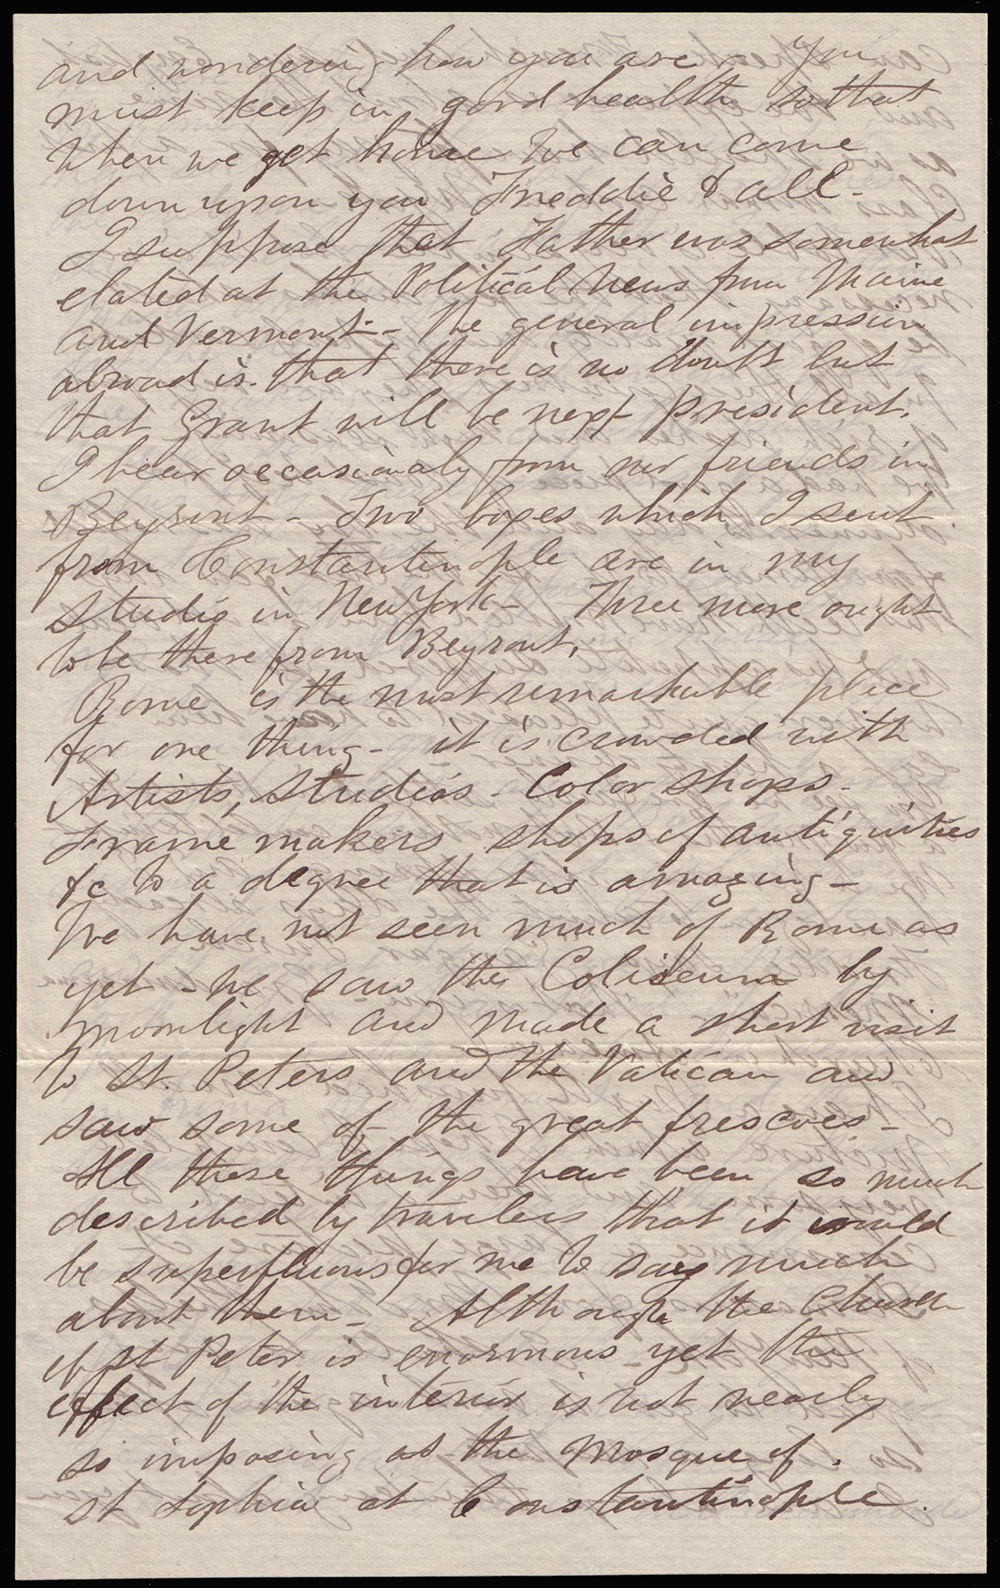 and wondering how you are. You
must keep in good health so that
when we get home we can come
down upon you Freddie & all -
I suppose that Father was somewhat
elated at the Political News from Maine
and Vermont - The general impression
abroad is that there is no doubt but
that Grant will be next president.
I hear occasionaly from our friends in
Beyrout - Two boxes which I sent
from Constantinople are in my
Studio in New York - Three more ought
to be there from Beyrout.
Rome is the most remarkable place
for one thing - it is crowded with
Artists, Studios - Color shops -
Frame makers shops of antiquities
&c to a degree that is amazing -
We have not seen much of Rome as
yet - we saw the Coliseum by
moonlight and made a short visit
to St. Peters and the Vatican and
saw some of the great frescoes -
All these things have been so much
described by travelers that it would
be superfluous for me to say much
about them - Although the Church
of St Peter is enormous yet the
effect of the interior is not nearly
so imposing as the Mosque of
St Sophia at Constantinople.